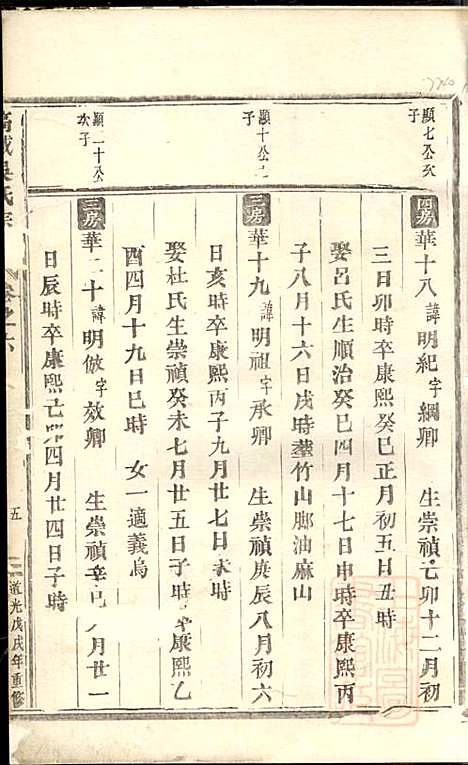 顯七公次子
四房 華十八 諱明紀字綱卿 生崇禎己卯十二月初
三日卯時卒康熙癸巳正月初五日丑時
娶呂氏生順治癸巳四月十七日申時卒康熙丙
子八月十六日戌時塟竹山脚油麻山
顯十公之子
三房 華十九 諱明祖字承卿 生崇禎庚辰八月初六
日亥時卒康熙丙子九月廿七日未時
娶杜氏生崇禎癸未七月廿五日子時卒康熙乙
酉四月十九日巳時 女一適義烏
顯二十公次子
三房 華二十 諱明倣字效卿 生崇禎辛巳八月廿一
日辰時卒康熙己卯四月廿四日子時
吳氏宗
卷之六
五
道光戊戌年重修